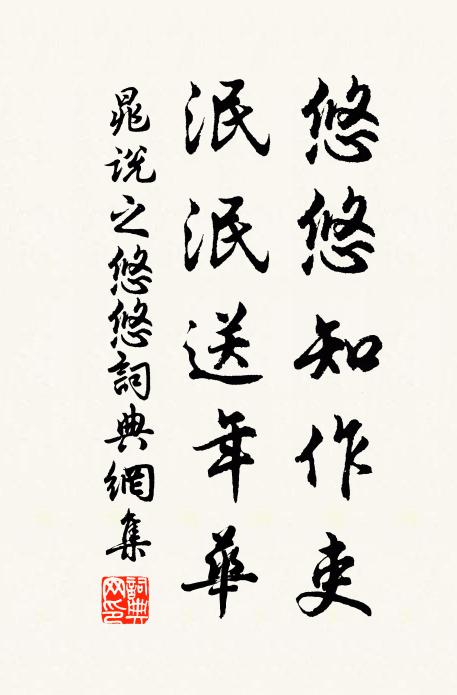 悠悠知作吏
泯泯送年華
晁說之悠悠詞典網集
詞典網印